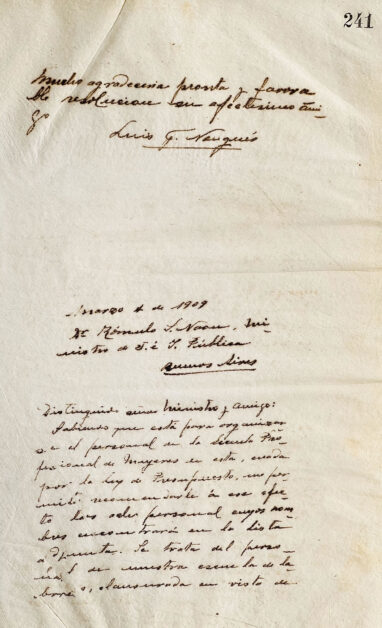 241
Mucho agradeceria pronta y favora
ble resolucion su afectisimo ami-
go
Luis F. Nougués
Marzo 4 de 1909
Dr. Rómulo S. Naon, Mi-
nistro de J. é I. Pública
Buenos Aires
Distinguido señor Ministro y amigo:
Sabiendo que está para organizar
se el personal en la Escuela Pro-
fesional de Mujeres en esta, creada
por la Ley de Presupuesto, me per-
mito recomendarle á ese efec-
to los del personal cuyos nom
bres encontrará en la lista
adjunta. Se trata del perso-
nal de nuestra escuela de la-
bores, clausurada en vista de